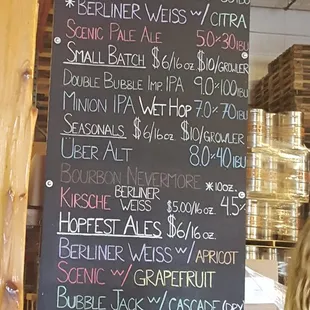 *BERLINER WEISS W/ CITRA
SCENIC PALE ALE 5.0 x 30 IBU
SMALL BATCH $6/16oz $10/GROWLER
DOUBLE BUBBLE IMP. IPA 9.0 x 100 IBU
MINION IPA WET HOP 7.0 x 70 IBU
SEASONALS $6/16oz $10/GROWLER
ÜBER ALT 8.0 x 40 IBU
BOURBON NEVERMORE *10oz.
KIRSCHE BERLINER WEISS $5.00/16oz. 4.5%
HOPFEST ALES $6/16oz.
BERLINER WEISS W/ APRICOT
SCENIC W/ GRAPEFRUIT
BUBBLE JACK W/ CASCADE (DRY